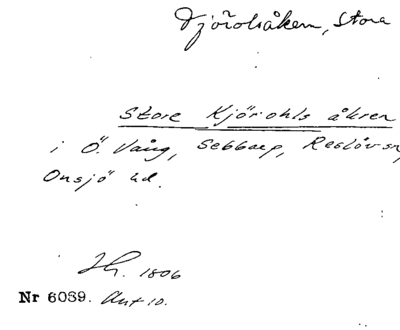 Djöroliåkern, Stora
Store Kjöriohls åkren
i Ö. Vång, Sebbarp, Reslövs sn,
Onsjö hd.
Lh. 1806
Nr 6039. Akt 10.